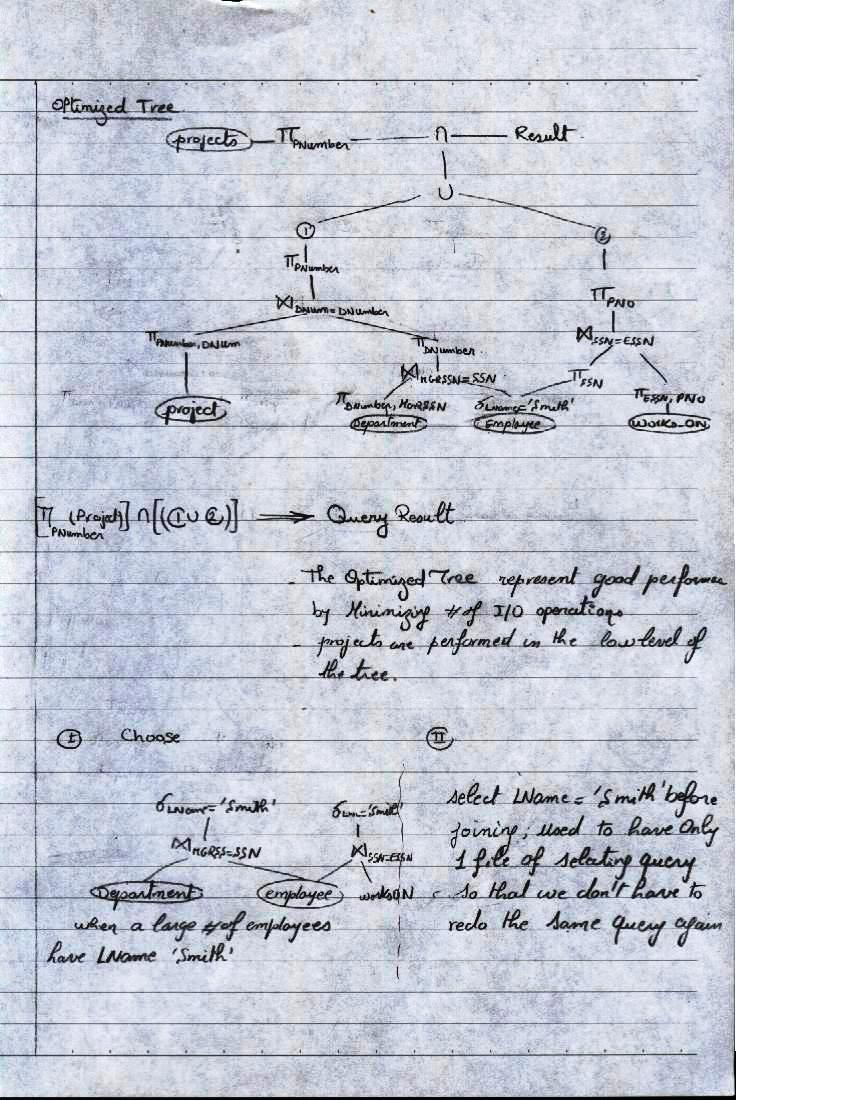 Optimized Tree
projects π PNumber ∩ Result
∪
① ②
π PNumber
π PNO
⋈ DNum = DNumber
⋈ SSN = ESSN
π PNumber, DNum π DNumber
⋈ MGRSSN = SSN π SSN
π DNumber, MGRSSN σ LName = 'Smith' π ESSN, PNO
project Department Employee Works_ON
[π PNumber (Project)] ∩ [(① ∪ ②)] ⟹ Query Result
- The Optimized Tree represent good performer
by Minimizing # of I/O operations
- projects are performed in the low level of
the tree.
Ⓘ Choose Ⅱ
σ LName = 'Smith' σ LNa = 'Smith'
⋈ MGRSS = SSN ⋈ SSN = ESSN
Department employee worksON
when a large # of employees
have LName 'Smith'
select LName = 'Smith' before
joining; used to have only
1 file of selecting query
so that we don't have to
redo the same query again